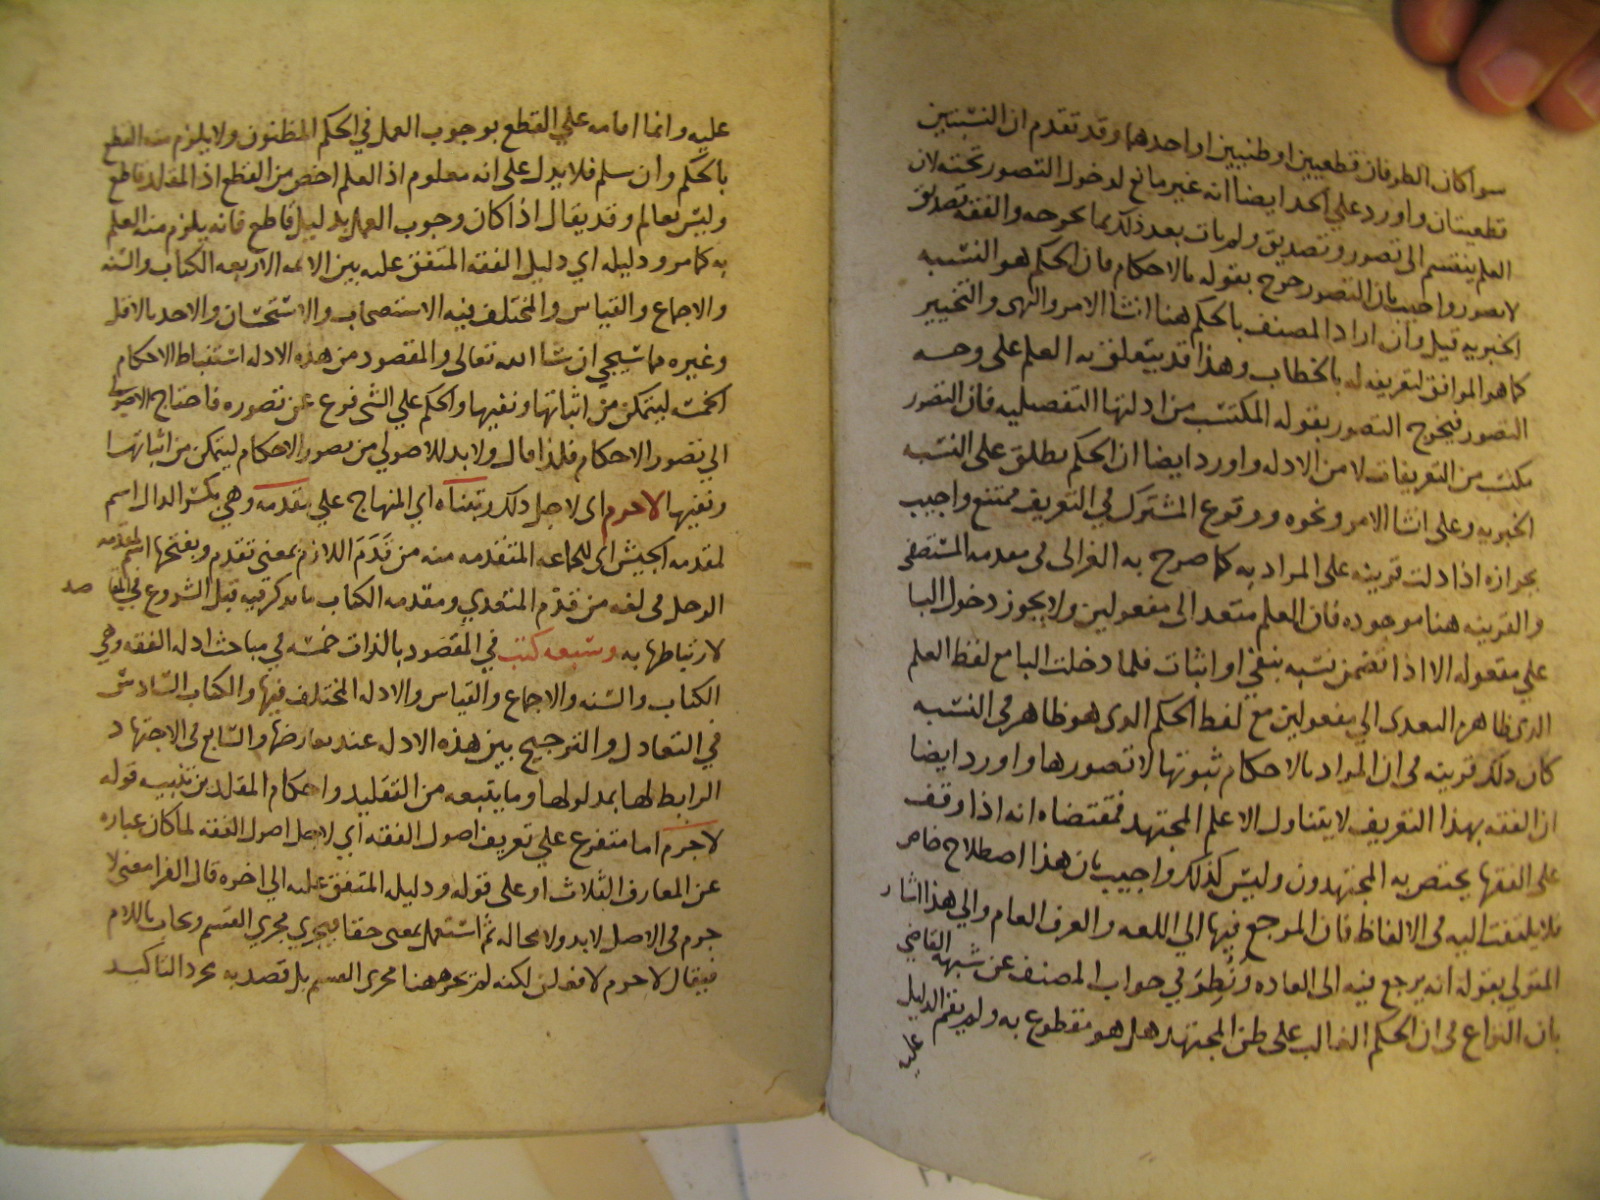 سواكان الطرفان قطعيين او ظنيين او احدهما وقد تقدم ان النسبتين
قطعيتان واورد علي الحد ايضا انه غير مانع لدخول التصور تحته لان
العلم ينقسم الى تصور وتصديق ولم يات بعد ذلك بما يخرجه والفقه تصديق
لا تصور واجيب بان التصور خرج بقوله بالاحكام فان الحكم هو النسبه
الخبريه قيل وان اراد المصنف بالحكم هنا انشا الامر والنهى والتخيير
كما هو الموافق لتعريفه له بالخطاب وهذا قد يتعلق به العلم على وجه
التصور فيخرج التصور بقوله المكتسب من ادلتها التفصيليه فان التصور
يكتسب من التعريفات لا من الادله واورد ايضا ان الحكم يطلق على النسبه
الخبريه وعلى انشا الامر ونحوه ووقوع المشترك في التعريف ممتنع واجيب
بجوازه اذا دلت قرينه على المراد به كما صرح به الغزالى فى مقدمه المستصفى
والقرينه هنا موجوده فان العلم متعد الى مفعولين ولا يجوز دخول البا
علي مفعوله الا اذا تضمن نسبه بنفي او اثبات فلما دخلت البا مع لفظ العلم
الذى ظاهره التعدى الي مفعولين مع لفظ الحكم الذى هو ظاهر فى النسبه
كان ذلك قرينه فى ان المراد بالاحكام ثبوتها لا تصورها واورد ايضا
ان الفقه بهذا التعريف لا يتناول الا علم المجتهد فمقتضاه انه اذا وقف
على الفقها يختص به المجتهدون وليس كذلك واجيب بان هذا اصطلاح خاص
فلا يلتفت اليه فى الالفاظ فان المرجع فيها الي اللغه والعرف العام والي هذا اشار
المتولي بقوله انه يرجع فيه الى العاده ونظر في جواب المصنف عن شبهه القاضي
بان النزاع فى ان الحكم الغالب على ظن المجتهد هل هو مقطوع به ولم يقم الدليل
عليه
عليه وانما اقامه علي القطع بوجوب العمل في الحكم المظنون ولا يلزم منه القطع
بالحكم وان سلم فلا يدل على انه معلوم اذ العلم اخص من القطع اذ المقلد قاطع
وليس بعالم وقد يقال اذا كان وجوب العمل بدليل قاطع فانه يلزم منه العلم
به كما مر ودليله اي دليل الفقه المتفق عليه بين الائمه الاربعه الكتاب والسنه
والاجماع والقياس والمختلف فيه الاستصحاب والاستحسان والاخذ بالاقل
وغيره مما سيجي ان شا الله تعالى والمقصود من هذه الادله استنباط الاحكام
الخمسه ليتمكن من اثباتها ونفيها والحكم علي الشى فرع عن تصوره فاحتاج الاصولي
الي تصور الاحكام فلذا قال ولا بد للاصولي من تصور الاحكام ليتمكن من اثباتها
ونفيها لا جرم اى لاجل ذلك رتبناه اي المنهاج علي مقدمه وهي بكسر الدال اسم
لمقدمه الجيش اى للجماعه المتقدمه منه من قَدَمَ اللازم بمعنى تقدم وبفتحها اسم لمقدمه
الرحل فى لغه من قدّم المتعدي ومقدمه الكتاب ما يذكر فيه قبل الشروع في المقا صد
لارتباطها به وسبعه كتب في المقصود بالذات خمسه في مباحث ادله الفقه وهي
الكتاب والسنه والاجماع والقياس والادله المختلف فيها والكتاب السادس
في التعادل والترجيح بين هذه الادله عند تعارضها والسابع فى الاجتهاد
الرابط لها بمدلولها وما يتبعه من التقليد واحكام المقلدين تنبيه قوله
لا جرم اما متفرع علي تعريف اصول الفقه اي لاجل اصول الفقه لما كان عباره
عن المعارف الثلاث او على قوله ودليله المتفق عليه الي اخره قال الفرا معنى لا
جرم فى الاصل لابد ولا محاله ثم استعمل بمعنى حقا فيجري مجري القسم ويجاب باللام
فيقال لا جرم لافعلن لكنه لم يجر ههنا مجرى القسم بل قصد به مجرد التاكيد